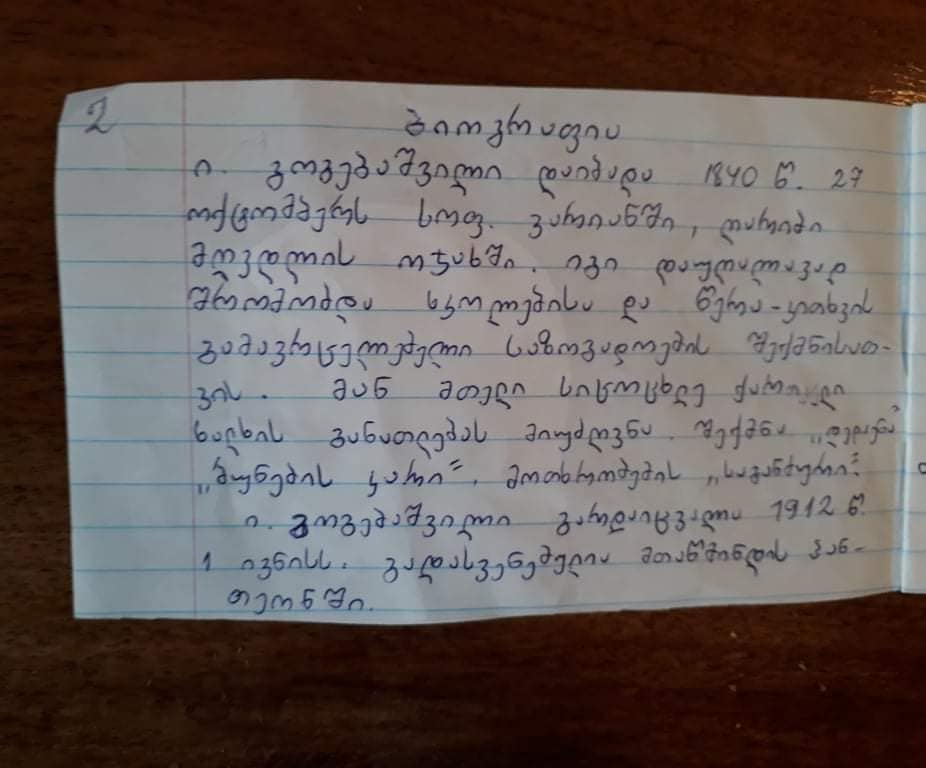 2
ბიოგრაფია
ი. გოგებაშვილი დაიბადა 1840 წ. 27
ოქტომბერს სოფ. ვარიანში, ღარიბი
მღვდლის ოჯახში. იგი დაუღალავად
შრომობდა სკოლებისა და წერა-კითხვის
გამავრცელებელი საზოგადოების შექმნისათ-
ვის. მან მთელი სიცოცხლე ქართველი
ხალხის განათლებას მიუძღვნა. შექმნა „დედაენა“
„ბუნების კარი“. მოთხრობების „საგანძური“.
ი. გოგებაშვილი გარდაიცვალა 1912 წ.
1 ივნისს. გადასვენებულია მთაწმინდის პან-
თეონში.